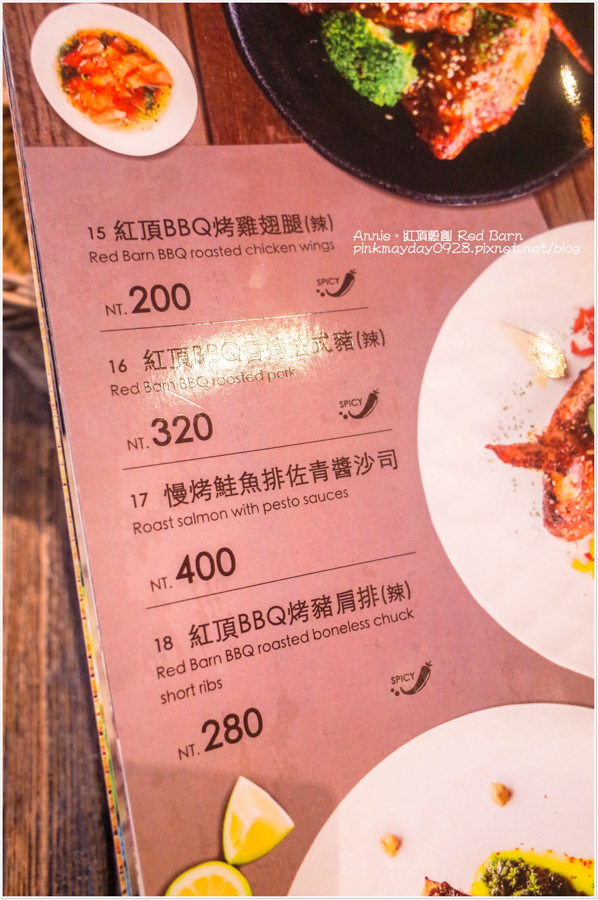 Annie。紅頂穀創 Red Barn
pinkmayday0928.pixnet.net/blog
15 紅頂BBQ烤雞翅腿(辣)
Red Barn BBQ roasted chicken wings
NT. 200
SPICY
16 紅頂BBQ 式豬(辣)
Red Barn BBQ roosted pork
NT. 320
SPICY
17 慢烤鮭魚排佐青醬沙司
Roast salmon with pesto sauces
NT. 400
18 紅頂BBQ烤豬肩排(辣)
Red Barn BBQ roasted boneless chuck
short ribs
NT. 280
SPICY